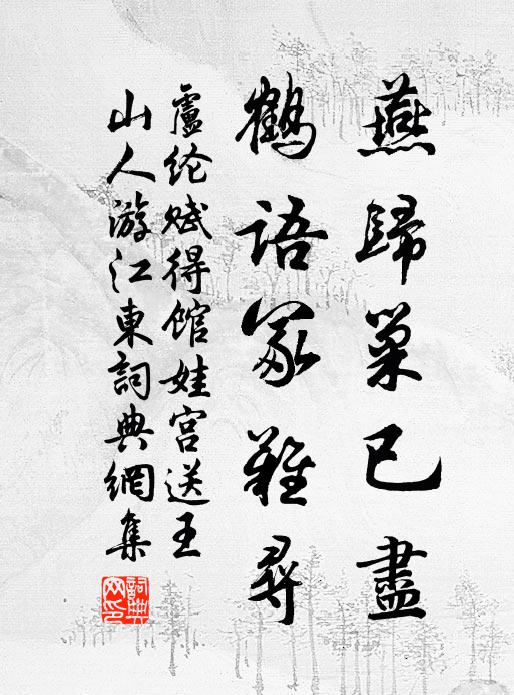 燕歸巢已盡
鶴語冢難尋
盧纶賦得館娃宮送王
山人游江東詞典網集